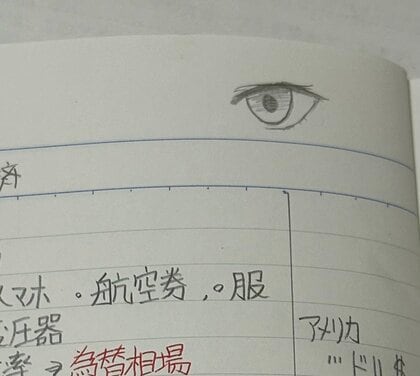 済
スマホ 。航空券 。服
変圧器
アメリカ
率→為替相場
〃ドル $